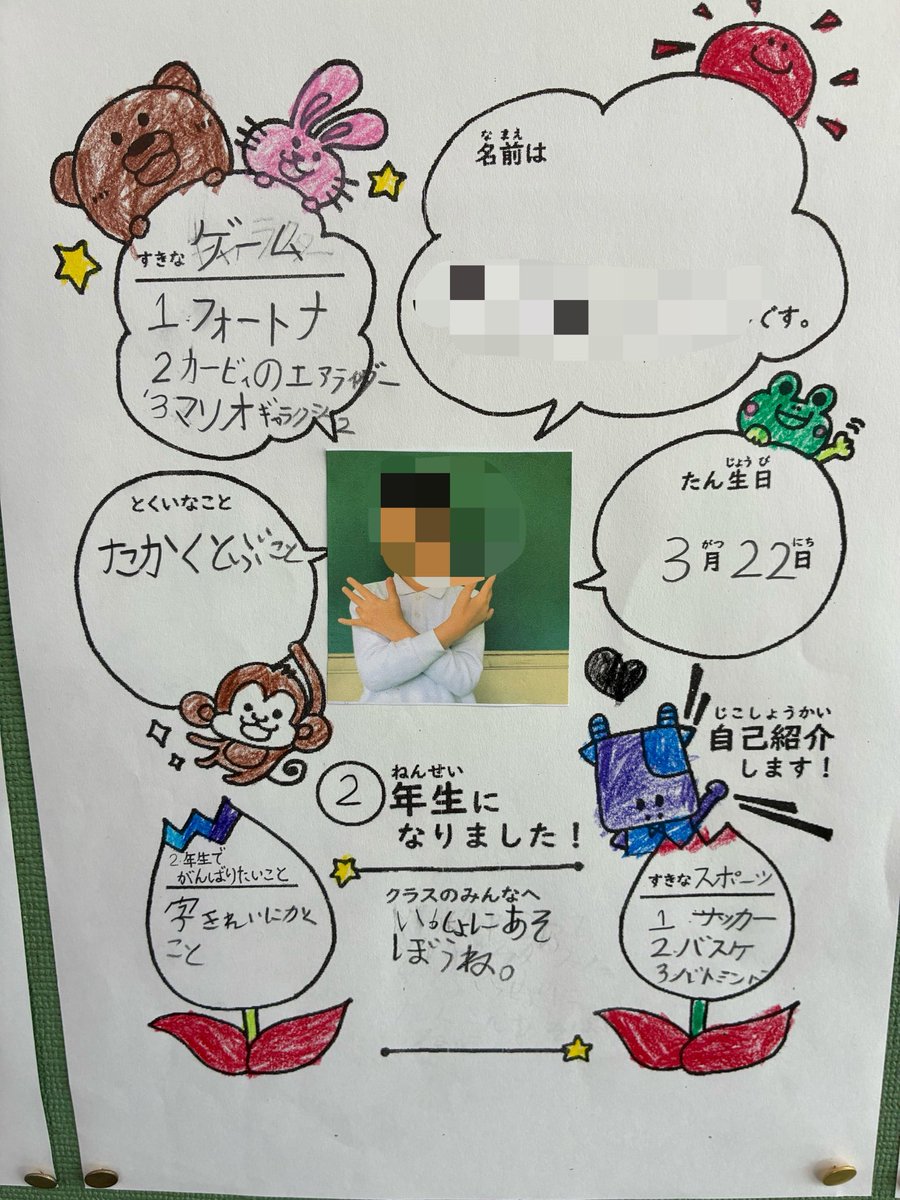 名前は
です。
すきなゲーム
1.フォートナ
2カービィのエアライダー
3マリオギャラクシー12
とくいなこと
たかくとぶこと
たん生日
3月22日
自己紹介
します！
2年生に
なりました！
2年生で
がんばりたいこと
字きれいにかく
こと
クラスのみんなへ
いっしょにあそ
ぼうね。
すきなスポーツ
1 サッカー
2.バスケ
3バトミントン